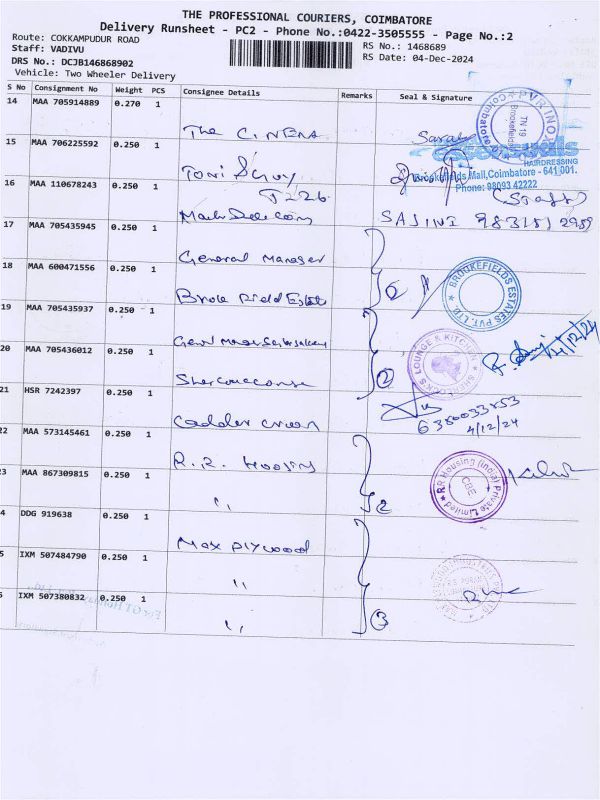 THE PROFESSIONAL COURIERS, COIMBATORE
Delivery Runsheet - PC2 - Phone No.:0422-3505555 - Page No.:2
Route: COKKAMPUDUR ROAD
RS No.: 1468689
Staff: VADIVU
RS Date: 04-Dec-2024
DRS No.: DCJB146868902
Vehicle: Two Wheeler Delivery
S No Consignment No Weight PCS Consignee Details Remarks Seal & Signature
14 MAA 705914889 0.270 1
The CINEMA
PVR INOX
Coimbatore
TN 19
Brookefields
15 MAA 706225592 0.250 1
Toni
HAIRDRESSING
Brookefields Mall, Coimbatore - 641 001.
Phone: 98093 42222
16 MAA 110678243 0.250 1
T-226
(Staff)
SAJINI
17 MAA 705435945 0.250 1
General Manager
18 MAA 600471556 0.250 1
2
BROOKEFIELDS ESTATES PVT. LTD.
19 MAA 705435937 0.250 1
20 MAA 705436012 0.250 1
2
LOUNGE & KITCHEN
4/12/24
21 HSR 7242397 0.250 1
6380033853
4/12/24
22 MAA 573145461 0.250 1
R.R. Hoosing
23 MAA 867309815 0.250 1
"
2
RR Housing (India) Private Limited
CBE
4 DDG 919638 0.250 1
Max plywood
5 IXM 507484790 0.250 1
"
6 IXM 507380832 0.250 1
"
3